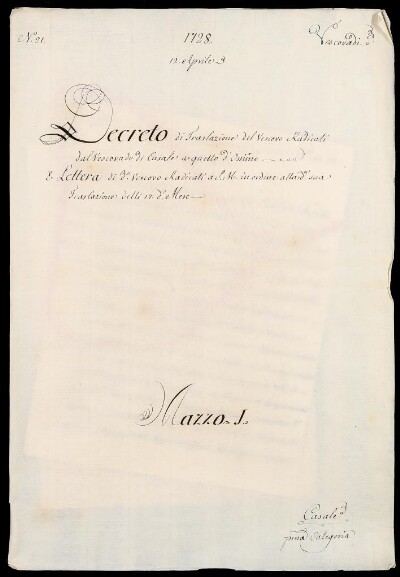 N.° 21.
1728.
Vescovadi
12 Aprile
Decreto di Traslazione del Vescovo Radicati
dal Vescovado di Casale a quello d'Osimo
E Lettera di d.° Vescovo Radicati a S. M. in ordine alla d.ª sua
Traslazione delli 12 d.° Mese
Mazzo 1.
Casale
p.ma Categoria